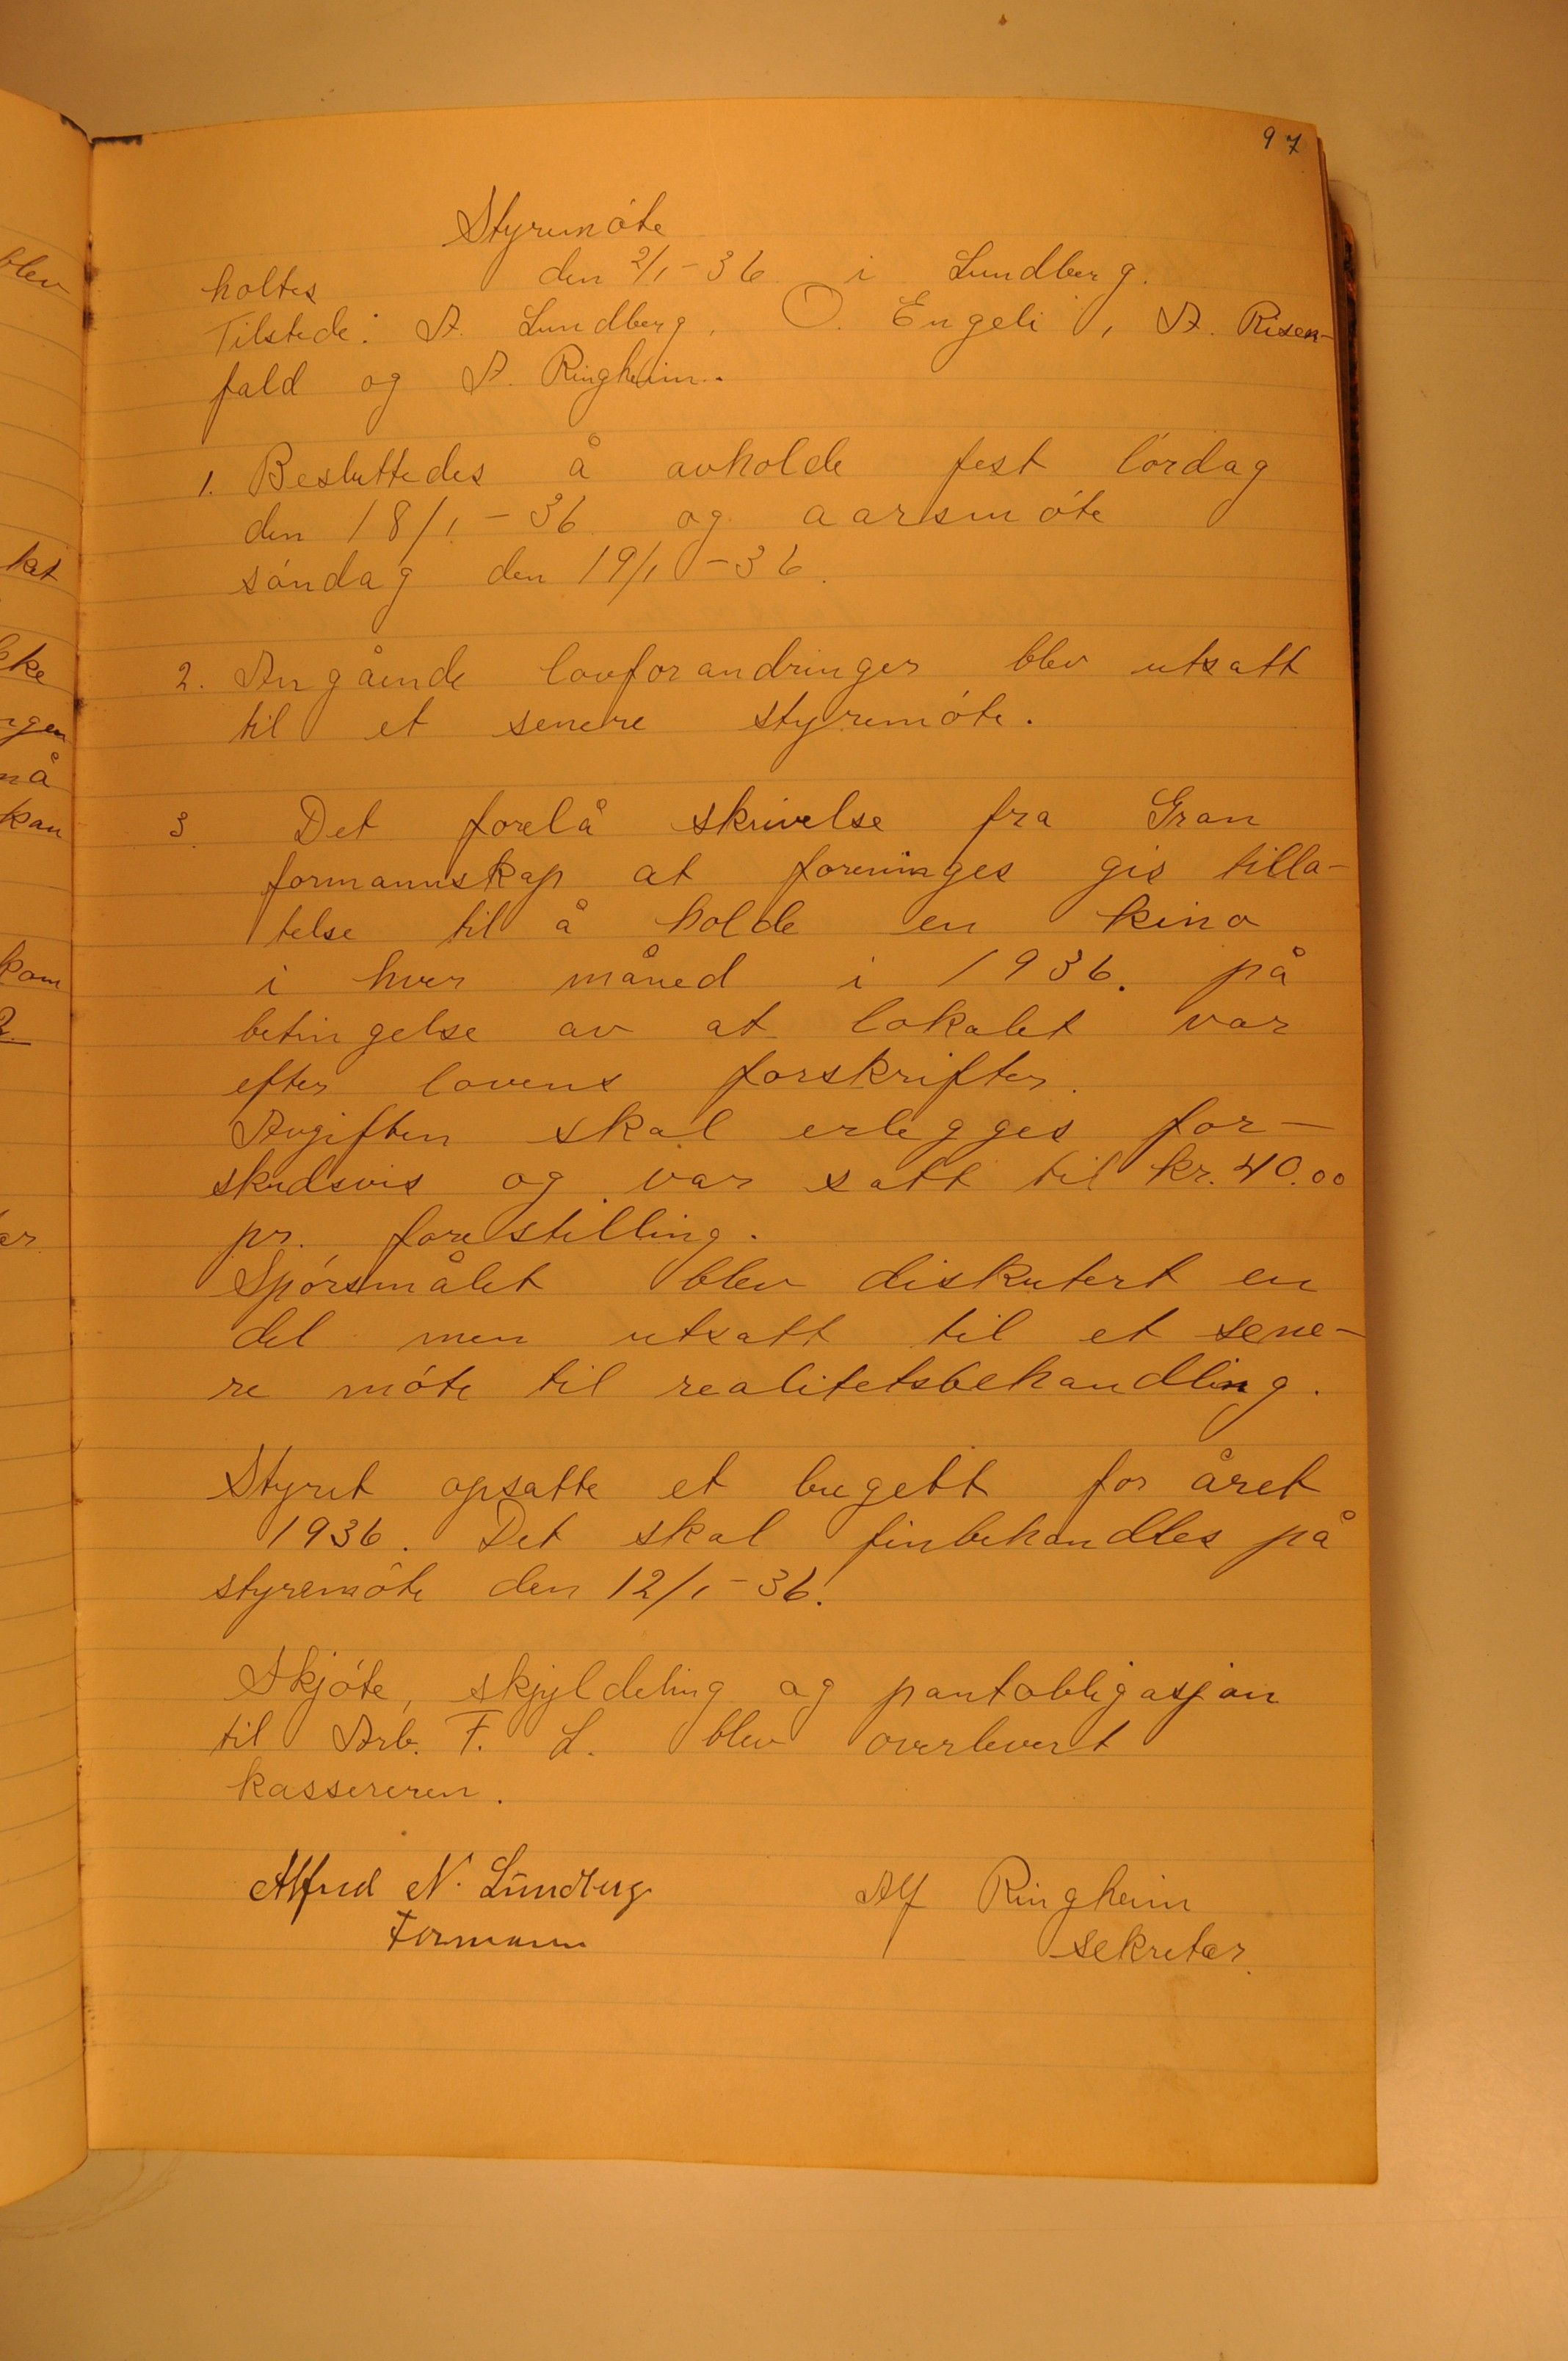 97
Styremóte
holtes den 2/1-36 i Lundberg.
Tilstede: A. Lundberg, O. Engeli, A. Risen-
fald og A. Ringheim.
1. Besluttedes å avholde fest lórdag
den 18/1-36 og aarsmóte
sóndag den 19/1-36.
2. Angående lovforandringer blev utsatt
til et senere styremóte.
3. Det forelå skrivelse fra Gran
formannskap at foreninges gis tilla-
telse til å holde en kino
i hver måned i 1936. på
betingelse av at lokalet var
efter lovens forskrifter.
Avgiften skal erlegges for-
skudsvis og var satt til kr. 40.00
pr. forestilling.
Spórsmålet blev diskutert en
del men utsatt til et sene-
re móte til realitetsbehandling.
Styret opsatte et bugett for året
1936. Det skal finbehandles på
styremóte den 12/1-36.
Skjóte, skjyldeling og pantobligasjon
til Arb. F. L. blev overlevert
kassereren.
Alfred N. Lundberg
Formann
Alf Ringheim
sekretær.
blev
ket
kke
ngen
må
kan
kom
2.
er